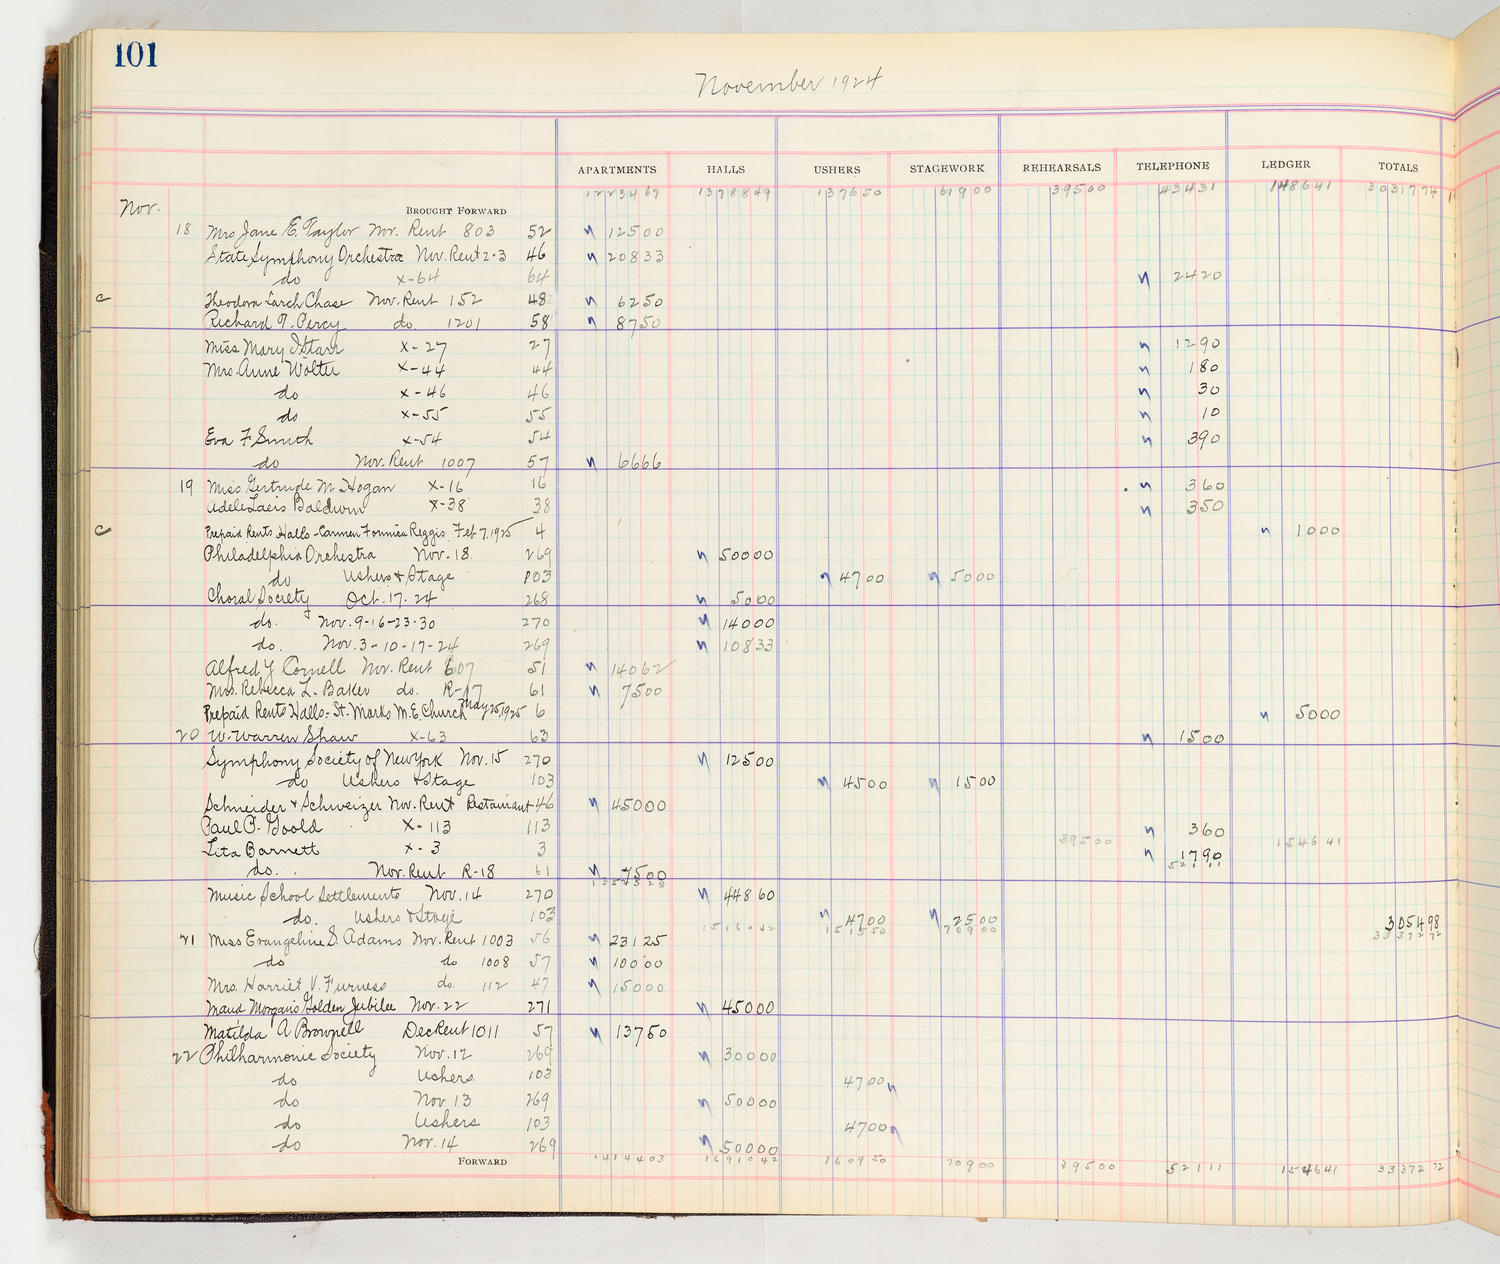 101
November 1924
APARTMENTS HALLS USHERS STAGEWORK REHEARSALS TELEPHONE LEDGER TOTALS
Nov. BROUGHT FORWARD 1223467 1378849 137650 61900 39500 43431 148641 3031774
18 Mrs Jane E. Taylor Nov. Rent 803 52 12500
State Symphony Orchestra Nov. Rent 2-3 46 20833
do X-64 64 2420
c Theodora Larch Chase Nov. Rent 152 48 6250
Richard T. Percy do. 1201 58 8750
Miss Mary I Starr X-27 27 1290
Mrs. Anne Wolter X-44 44 180
do X-46 46 30
do X-55 55 10
Eva F Smith X-54 54 390
do Nov. Rent 1007 57 6666
19 Miss Gertrude M Hogan X-16 16 360
Adele Laeis Baldwin X-38 38 350
c Prepaid Rents Halls - Carmen Formica Reggis Feb 7, 1925 4 1000
Philadelphia Orchestra Nov. 18. 269 50000
do Ushers & Stage 103 4700 5000
Choral Society Oct. 17-24 268 5000
do. Nov. 9-16-23-30 270 14000
do. Nov. 3-10-17-24 269 10833
Alfred Y Cornell Nov. Rent 607 51 14062
Mrs. Rebecca L. Baker do. R-17 61 7500
Prepaid Rents Halls - St. Marks M.E. Church May 25, 1925 6 5000
20 W. Warren Shaw X-63 63 1500
Symphony Society of New York Nov. 15 270 12500
do Ushers & Stage 103 4500 1500
Schneider & Schweizer Nov. Rent Restaurant 46 45000
Paul P. Goold X-113 113 360
39500 154641
Lita Barnett X-3 3 1790
52111
do. Nov. Rent R-18 61 7500
Music School Settlements Nov. 14 270 44860
do. Ushers & Stage 103 4700 2500 305498
1516042 151550 70900 3337272
21 Miss Evangeline S. Adams Nov. Rent 1003 56 23125
do do 1008 57 10000
Mrs. Harriet V. Furness do. 112 47 15000
Maud Morgan's Golden Jubilee Nov. 22 271 45000
Matilda A Brownell Dec Rent 1011 57 13750
22 Philharmonic Society Nov. 12 269 30000
do Ushers. 103 4700
do Nov 13 269 50000
do Ushers 103 4700
do Nov. 14 269 50000
FORWARD 1414403 1691042 160950 70900 39500 52111 154641 3337272